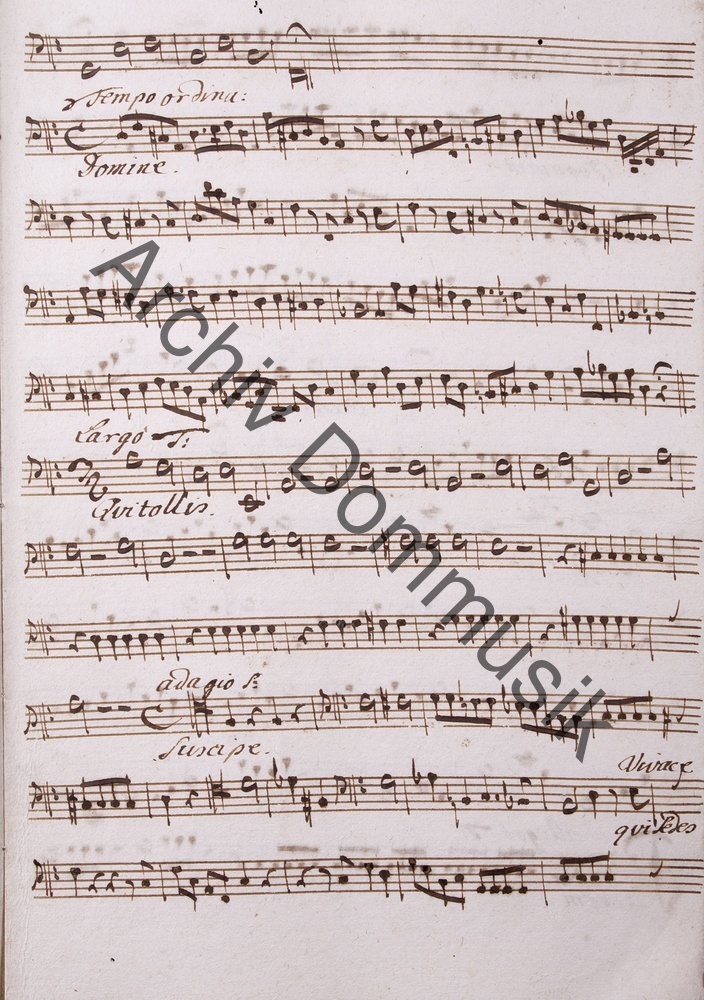 Tempo ordina:
Domine.
Largo
Qui tollis.
adagio
Suscipe.
Vivace
qui sedes
Archiv Dommusik